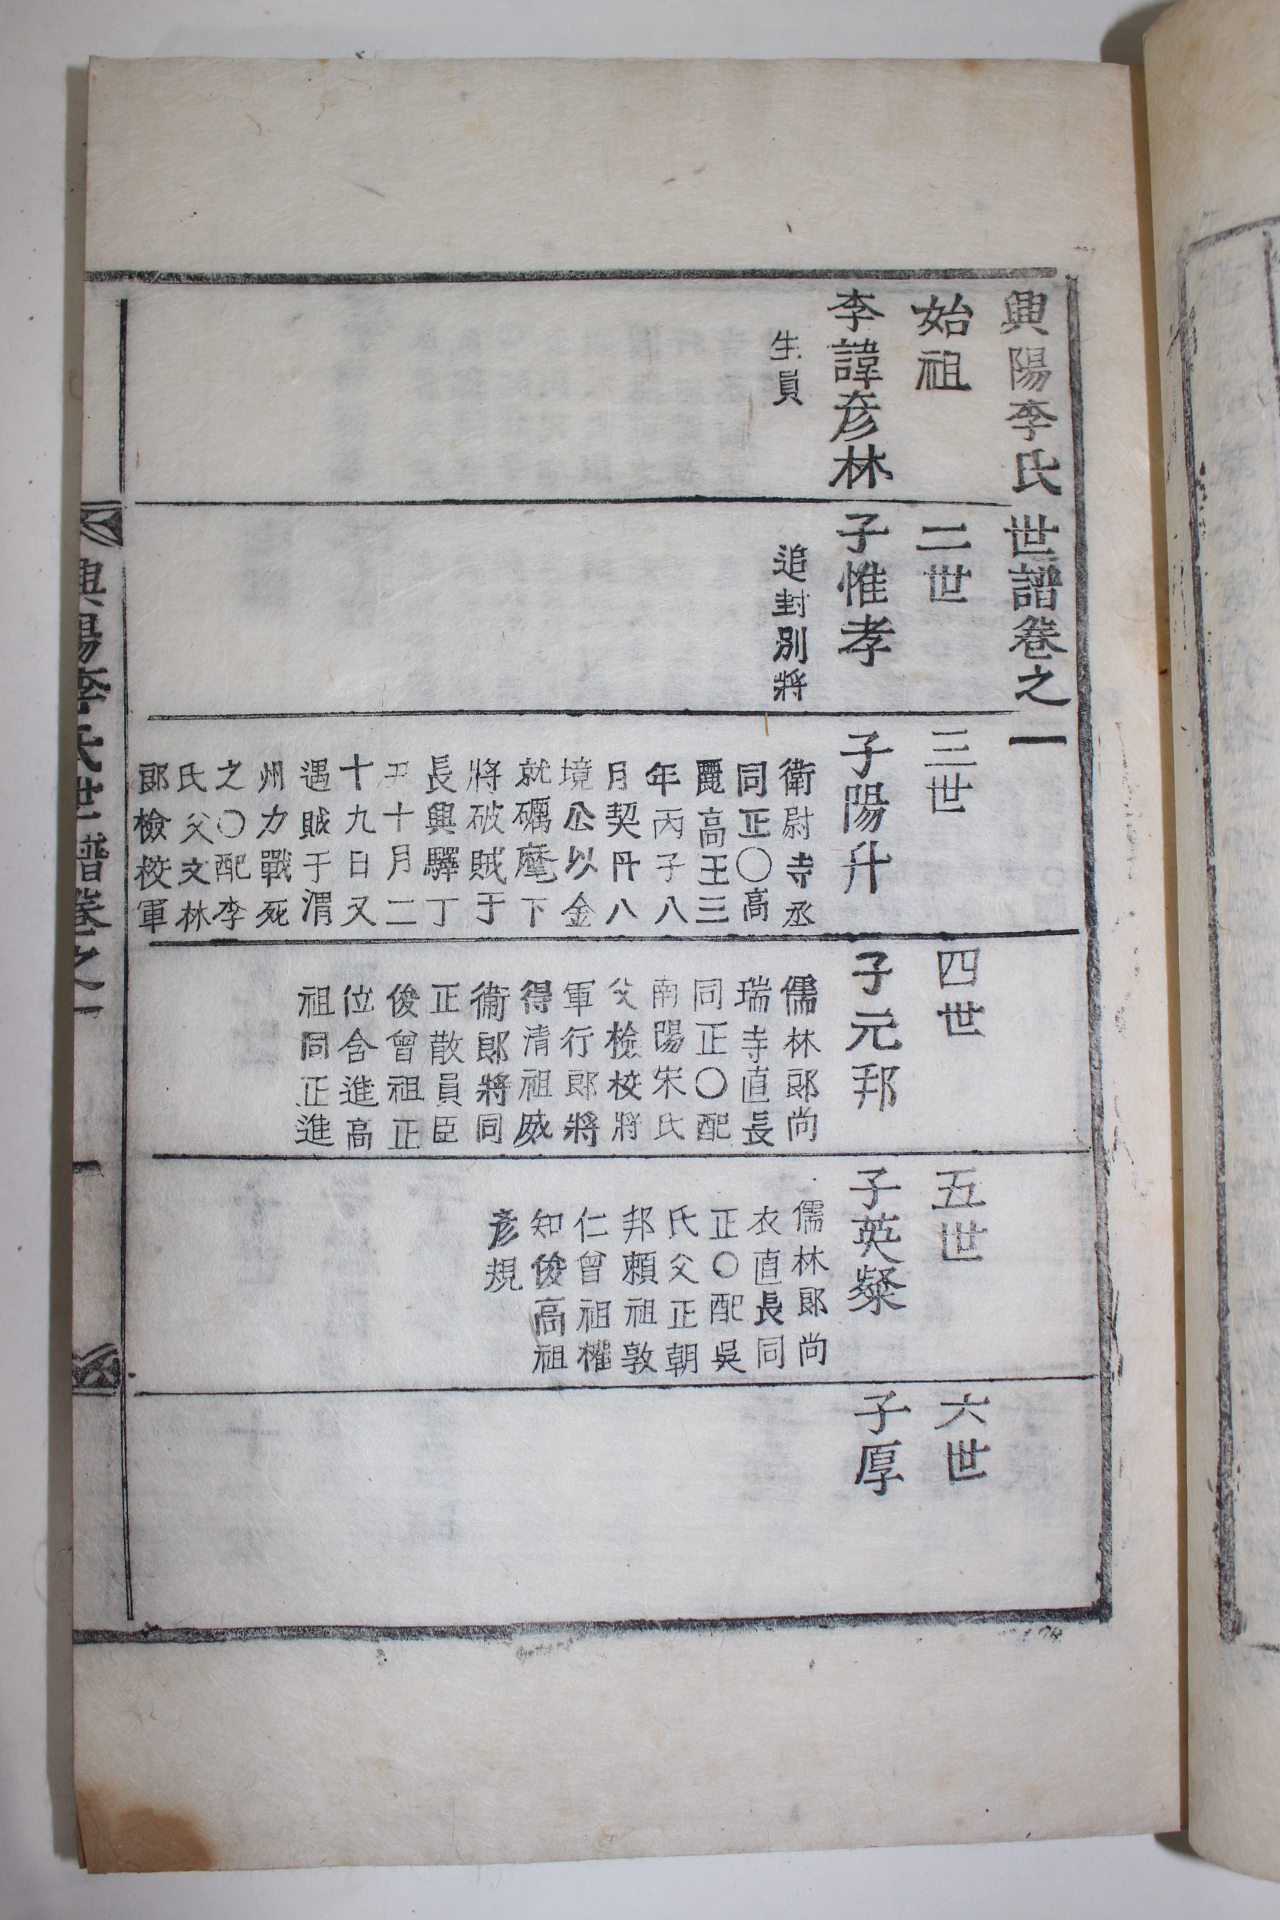 興陽李氏世譜卷之一
始祖
李諱彦林
生員
二世
子惟孝
追封別將
三世
子陽升
衛尉寺丞
同正〇高
麗高王三
年丙子八
月契丹八
境公以金
就礪麾下
將破賊于
長興驛丁
丑十月二
十九日又
遇賊于渭
州力戰死
之〇配李
氏父文林
郞檢校軍
四世
子元邦
儒林郞尚
瑞寺直長
同正〇配
南陽宋氏
父檢校將
軍行郞將
得清祖威
衛郞將同
正散員臣
俊曾祖正
位含進高
祖同正進
五世
子英粲
儒林郞尚
衣直長同
正〇配吳
氏父正朝
邦賴祖敦
仁曾祖權
知俊高祖
彦規
六世
子厚
興陽李氏世譜卷之一
一